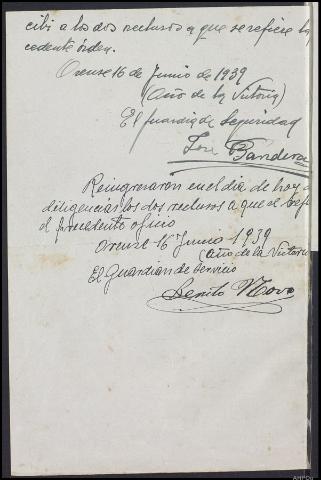 cibi a los dos reclusos a que se refiere la
cedente órden.
Orense 16 de Junio de 1939
(Año de la Victoria)
El guardia de Seguridad
José Bandera
Reingresaron en el dia de hoy de
diligencias los dos reclusos a que se refi
el precedente oficio
Orense 16 Junio 1939
(Año de la Victoria
El Guardian de Servicio
Benito Novo